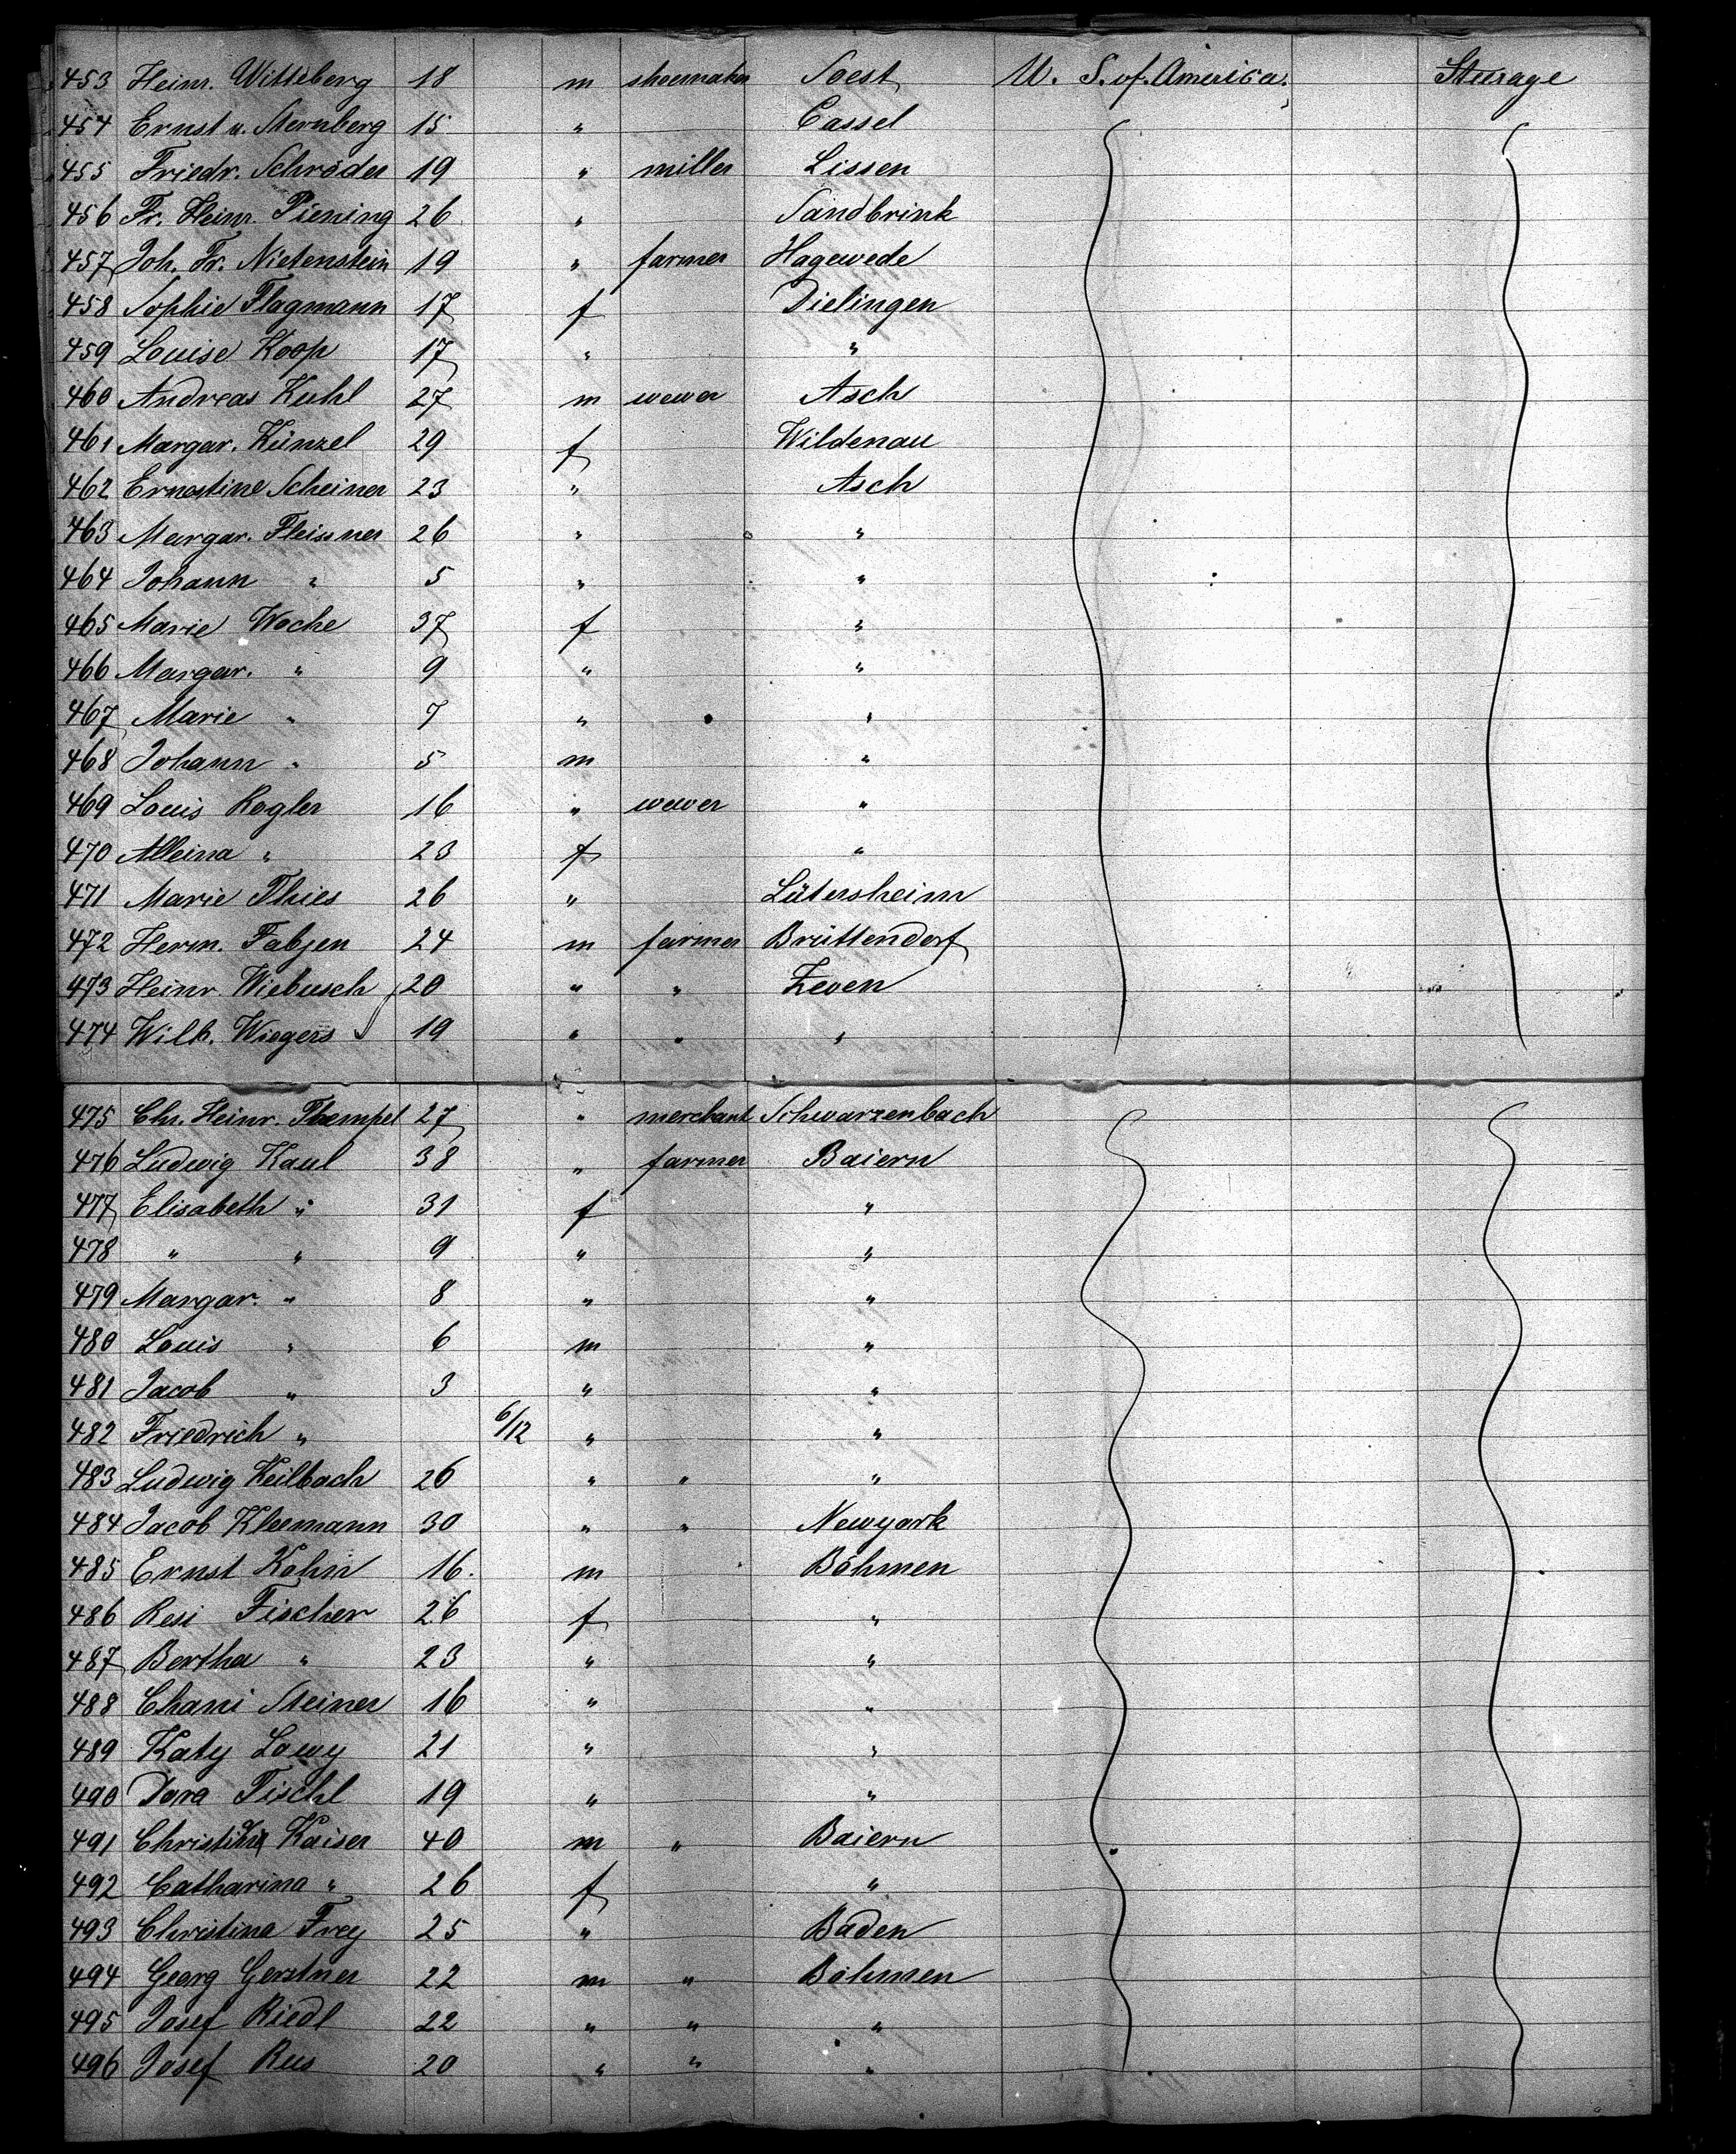 453 Heinr. Witteberg 18 m shoemaker Soest U. S. of America. Steerage
454 Ernst u. Sternberg 15 " Cassel
455 Friedr. Schröder 19 " miller Lissen
456 Fr. Heinr. Piening 26 " Sandbrink
457 Joh. Fr. Nietenstein 19 " farmer Hagewede
458 Sophie Flagmann 17 f Dielingen
459 Louise Koop 17 " "
460 Andreas Kuhl 27 m wewer Asch
461 Margar. Künzel 29 f Wildenau
462 Ernestine Scheiner 23 " Asch
463 Margar. Fleissner 26 " "
464 Johann " 5 " "
465 Marie Woche 37 f "
466 Margar. " 9 " "
467 Marie " 7 " "
468 Johann " 5 m "
469 Louis Rogler 16 " wewer "
470 Alleina " 23 f "
471 Marie Thies 26 " Lütersheim
472 Herm. Fabjen 24 m farmer Brüttendorf
473 Heinr. Wiebusch 20 " " Zeven
474 Wilh. Wiegers 19 " " "
475 Chr. Heinr. 27 " merchant Schwarzenbach
476 Ludwig Kaul 38 " farmer Baiern
477 Elisabeth " 31 f "
478 " " 9 " "
479 Margar. " 8 " "
480 Louis " 6 m "
481 Jacob " 3 " "
482 Friedrich " 6/12 " "
483 Ludwig Keilbach 26 " " "
484 Jacob Kleemann 30 " " Newyork
485 Ernst Kohn 16. m Böhmen
486 Resi Fischer 26 f "
487 Bertha " 23 " "
488 Chani Steiner 16 " "
489 Katy Lowy 21 " "
490 Dora Fischl 19 " "
491 Kaiser 40 m " Baiern
492 Catharina " 26 f "
493 Christina Frey 25 " Baden
494 Georg Gerstner 22 m " Böhmen
495 Josef Riedl 22 " " "
496 Josef Rus 20 " " "